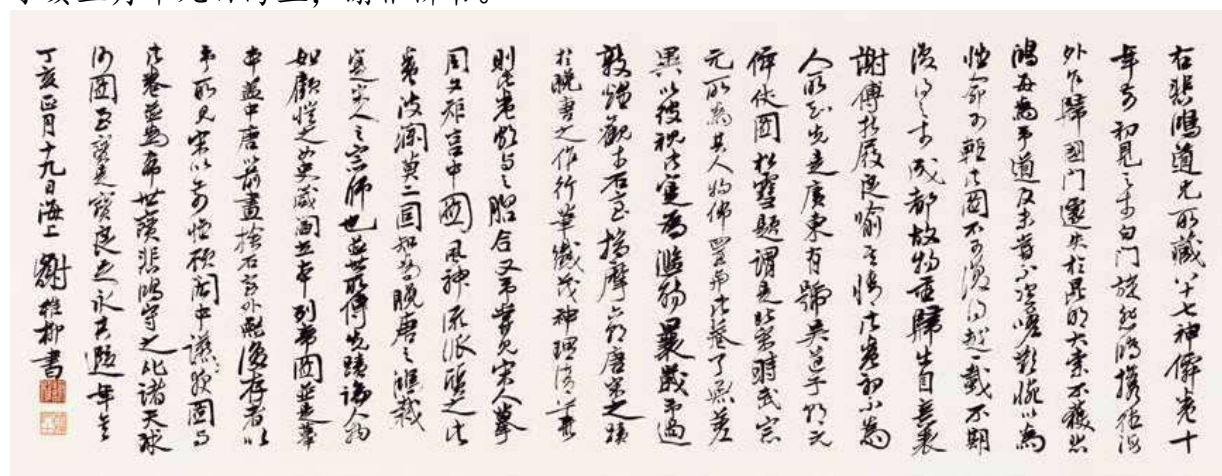 右悲鴻道兄所藏八十七神僊卷十
年前初見之于白門旋悲鴻攜往海
外乍歸國門遽失於昆明大索不獲悲
鴻每為予道及未嘗不咨嗟歎惋以為
性命可輕此圖不可復得越一載不期
復得之于成都故物重歸出自意表
謝傅折屐良喻其情此卷初不為
人所知先是廣東有號吳道子朝元
僊仗圖松雪題謂是北宋時武宗
元所為其人物佈置與此卷了無差
異以彼視此實為濫觴曩歲予過
敦煌觀于石室揣摩六朝唐宋之蹟
於晚唐之作行筆纖茂神理清華
則此卷頗與之吻合又予嘗見宋人摹
周文矩宮中圖風神流派質之此
卷波瀾莫二固知為晚唐之鴻裁
寔宋人之宗師也並世所傳先蹟論人物
如顧愷之女史箴閻立本列帝圖並是摹
本蓋中唐以前畫捨石室外無復存者以
予所見宋以前惟顧閎中讌飲圖與
此卷並為希世寶悲鴻守之比諸天球
河圖至寶是寶良足永其遐年矣
丁亥正月十九日海上謝稚柳書